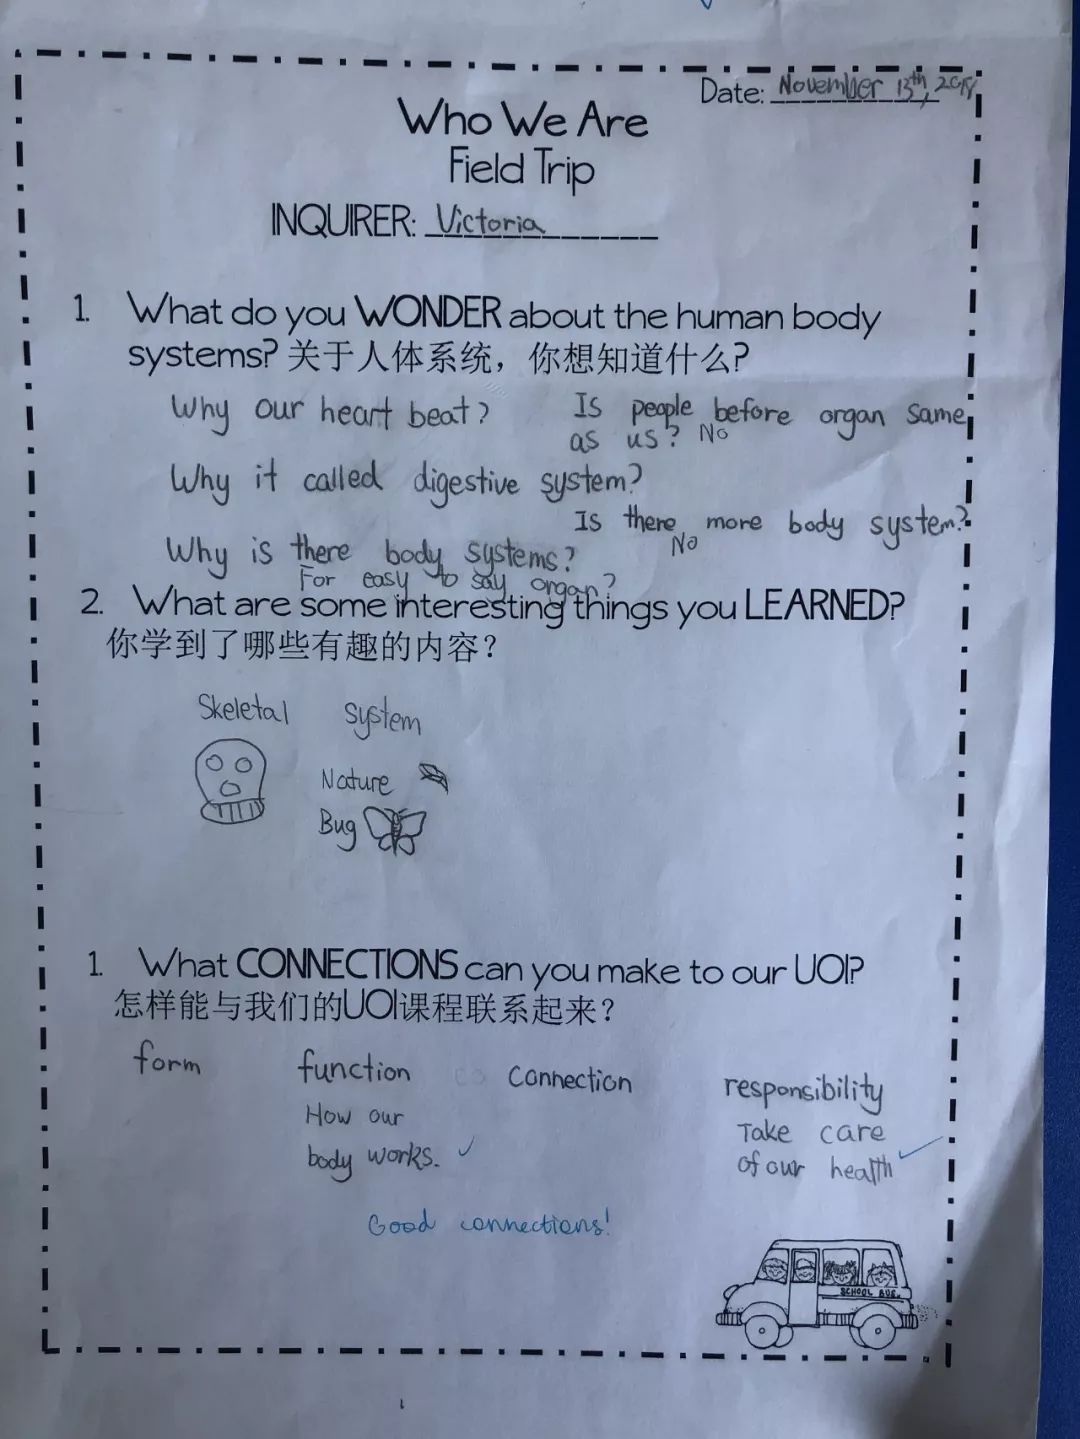 Date: November 13th, 2018
Who We Are
Field Trip
INQUIRER: Victoria
1. What do you WONDER about the human body
systems? 关于人体系统，你想知道什么?
Why our heart beat?
Is people before organ same
as us? No
Why it called digestive system?
Is there more body system?
No
Why is there body systems?
For easy to say organ?
2. What are some interesting things you LEARNED?
你学到了哪些有趣的内容？
Skeletal system
Nature
Bug
1. What CONNECTIONS can you make to our UOI?
怎样能与我们的UOI课程联系起来？
form function connection responsibility
How our
body works.
Take care
of our health
Good connections!
SCHOOL BUS